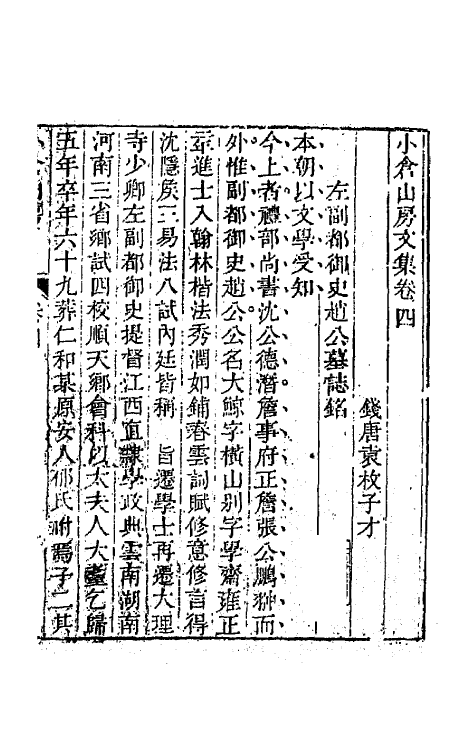 小倉山房文集卷四
錢唐袁枚子才
左副都御史趙公墓誌銘
本朝以文學受知
今上者禮部尚書沈公德潛詹事府正詹張公鵬翀而
外惟副都御史趙公公名大鯨字橫山别字學齋雍正
進士入翰林楷法秀潤如鋪春雲詞賦修意修言得
沈隱侯三易法八試內廷皆稱 旨遷學士再遷大理
寺少卿左副都御史提督江西直隸學政典雲南湖南
河南三省鄉試四校順天鄉會科以太夫人大耋乞歸
五年卒年六十九葬仁和某原安人郁氏祔焉子二其